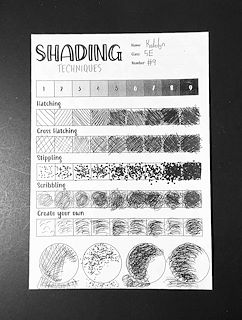 SHADING
TECHNIQUES
Name:
Class: 5E
Number: #9
1 2 3 4 5 6 7 8 9
Hatching
Cross Hatching
Stippling
Scribbling
Create your own